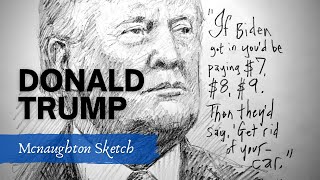 DONALD
TRUMP
Mcnaughton Sketch
"If Biden
got in you'd be
paying $7,
$8, $9.
Then they'd
say, 'Get rid
of your
car.'"